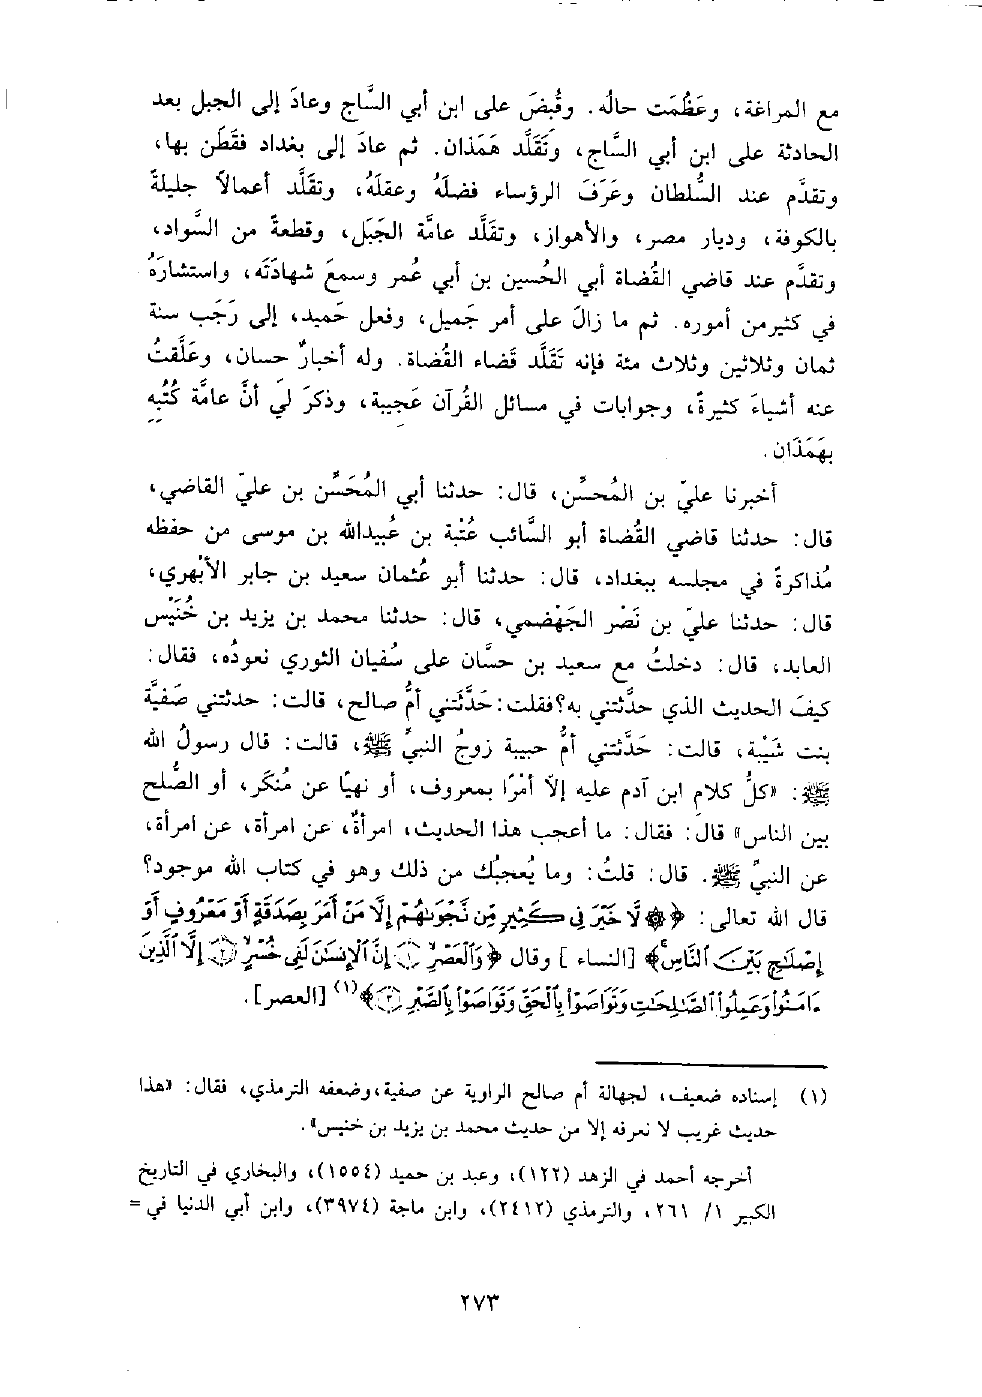 مع المراغة، وعَظُمَت حاله. وقُبضَ على ابن أبي السَّاج وعادَ إلى الجبل بعد
الحادثة على ابن أبي الساج، وتَقَلَّد هَمَذان. ثم عادَ إلى بغداد فقَطَن بها،
وتقدَّم عند السُّلطان وعَرَفَ الرؤساء فضلَهُ وعقلَهُ، وتقلَّد أعمالاً جليلةً
بالكوفة، وديار مصر، والأهواز، وتقلَّد عامَّة الجَبَل، وقطعةً من السَّواد،
وتقدَّم عند قاضي القُضاة أبي الحُسين بن أبي عُمر وسمعَ شهادَتَه، واستشارَهُ
في كثير من أموره. ثم ما زالَ على أمر جَميل، وفعل حَميد، إلى رَجَب سنة
ثمان وثلاثين وثلاث مئة فإنه تَقَلَّد قَضاء القُضاة. وله أخبارٌ حسان، وعَلَّقتُ
عنه أشياءَ كثيرةً، وجوابات في مسائل القُرآن عَجيبة، وذكرَ ليَ أنَّ عامَّة كُتُبه
بهَمَذَان.
أخبرنا عليّ بن المُحسِّن، قال: حدثنا أبي المُحَسِّن بن عليّ القاضي،
قال: حدثنا قاضي القُضاة أبو السَّائب عُتْبة بن عُبيدالله بن موسى من حفظه
مُذاكرةً في مجلسه ببغداد، قال: حدثنا أبو عُثمان سعيد بن جابر الأبْهري،
قال: حدثنا عليّ بن نَصْر الجَهْضمي، قال: حدثنا محمد بن يزيد بن خُنَيْس
العابد، قال: دخلتُ مع سعيد بن حسَّان على سُفيان الثوري نعودُه، فقال:
كيفَ الحديث الذي حدَّثتني به؟ فقلت: حَدَّثَتني أمُّ صالح، قالت: حدثتني صَفيَّة
بنت شَيْبة، قالت: حَدَّثتني أمُّ حبيبة زوجُ النبيِّ ﷺ، قالت: قال رسولُ الله
ﷺ: «كلُّ كلام ابن آدم عليه إلاّ أمْرًا بمعروف، أو نهيًا عن مُنكَر، أو الصُّلح
بين الناس» قال: فقال: ما أعجب هذا الحديث، امرأةٌ، عن امرأة، عن امرأة،
عن النبيِّ ﷺ. قال: قلتُ: وما يُعجبُك من ذلك وهو في كتاب الله موجود؟
قال الله تعالى: ﴿۞ لَّا خَيْرَ فِى كَثِيرٍ مِّن نَّجْوَىٰهُمْ إِلَّا مَنْ أَمَرَ بِصَدَقَةٍ أَوْ مَعْرُوفٍ أَوْ
إِصْلَٰحٍ بَيْنَ ٱلنَّاسِ﴾ [النساء ] وقال ﴿وَٱلْعَصْرِ ۝١ إِنَّ ٱلْإِنسَٰنَ لَفِى خُسْرٍ ۝٢ إِلَّا ٱلَّذِينَ
ءَامَنُوا۟ وَعَمِلُوا۟ ٱلصَّٰلِحَٰتِ وَتَوَاصَوْا۟ بِٱلْحَقِّ وَتَوَاصَوْا۟ بِٱلصَّبْرِ ۝٣﴾(١) [العصر].
(١) إسناده ضعيف، لجهالة أم صالح الراوية عن صفية، وضعفه الترمذي، فقال: «هذا
حديث غريب لا نعرفه إلا من حديث محمد بن يزيد بن خنيس».
أخرجه أحمد في الزهد (١٢٢)، وعبد بن حميد (١٥٥٤)، والبخاري في التاريخ
الكبير ١/ ٢٦١، والترمذي (٢٤١٢)، وابن ماجة (٣٩٧٤)، وابن أبي الدنيا في =
٢٧٣